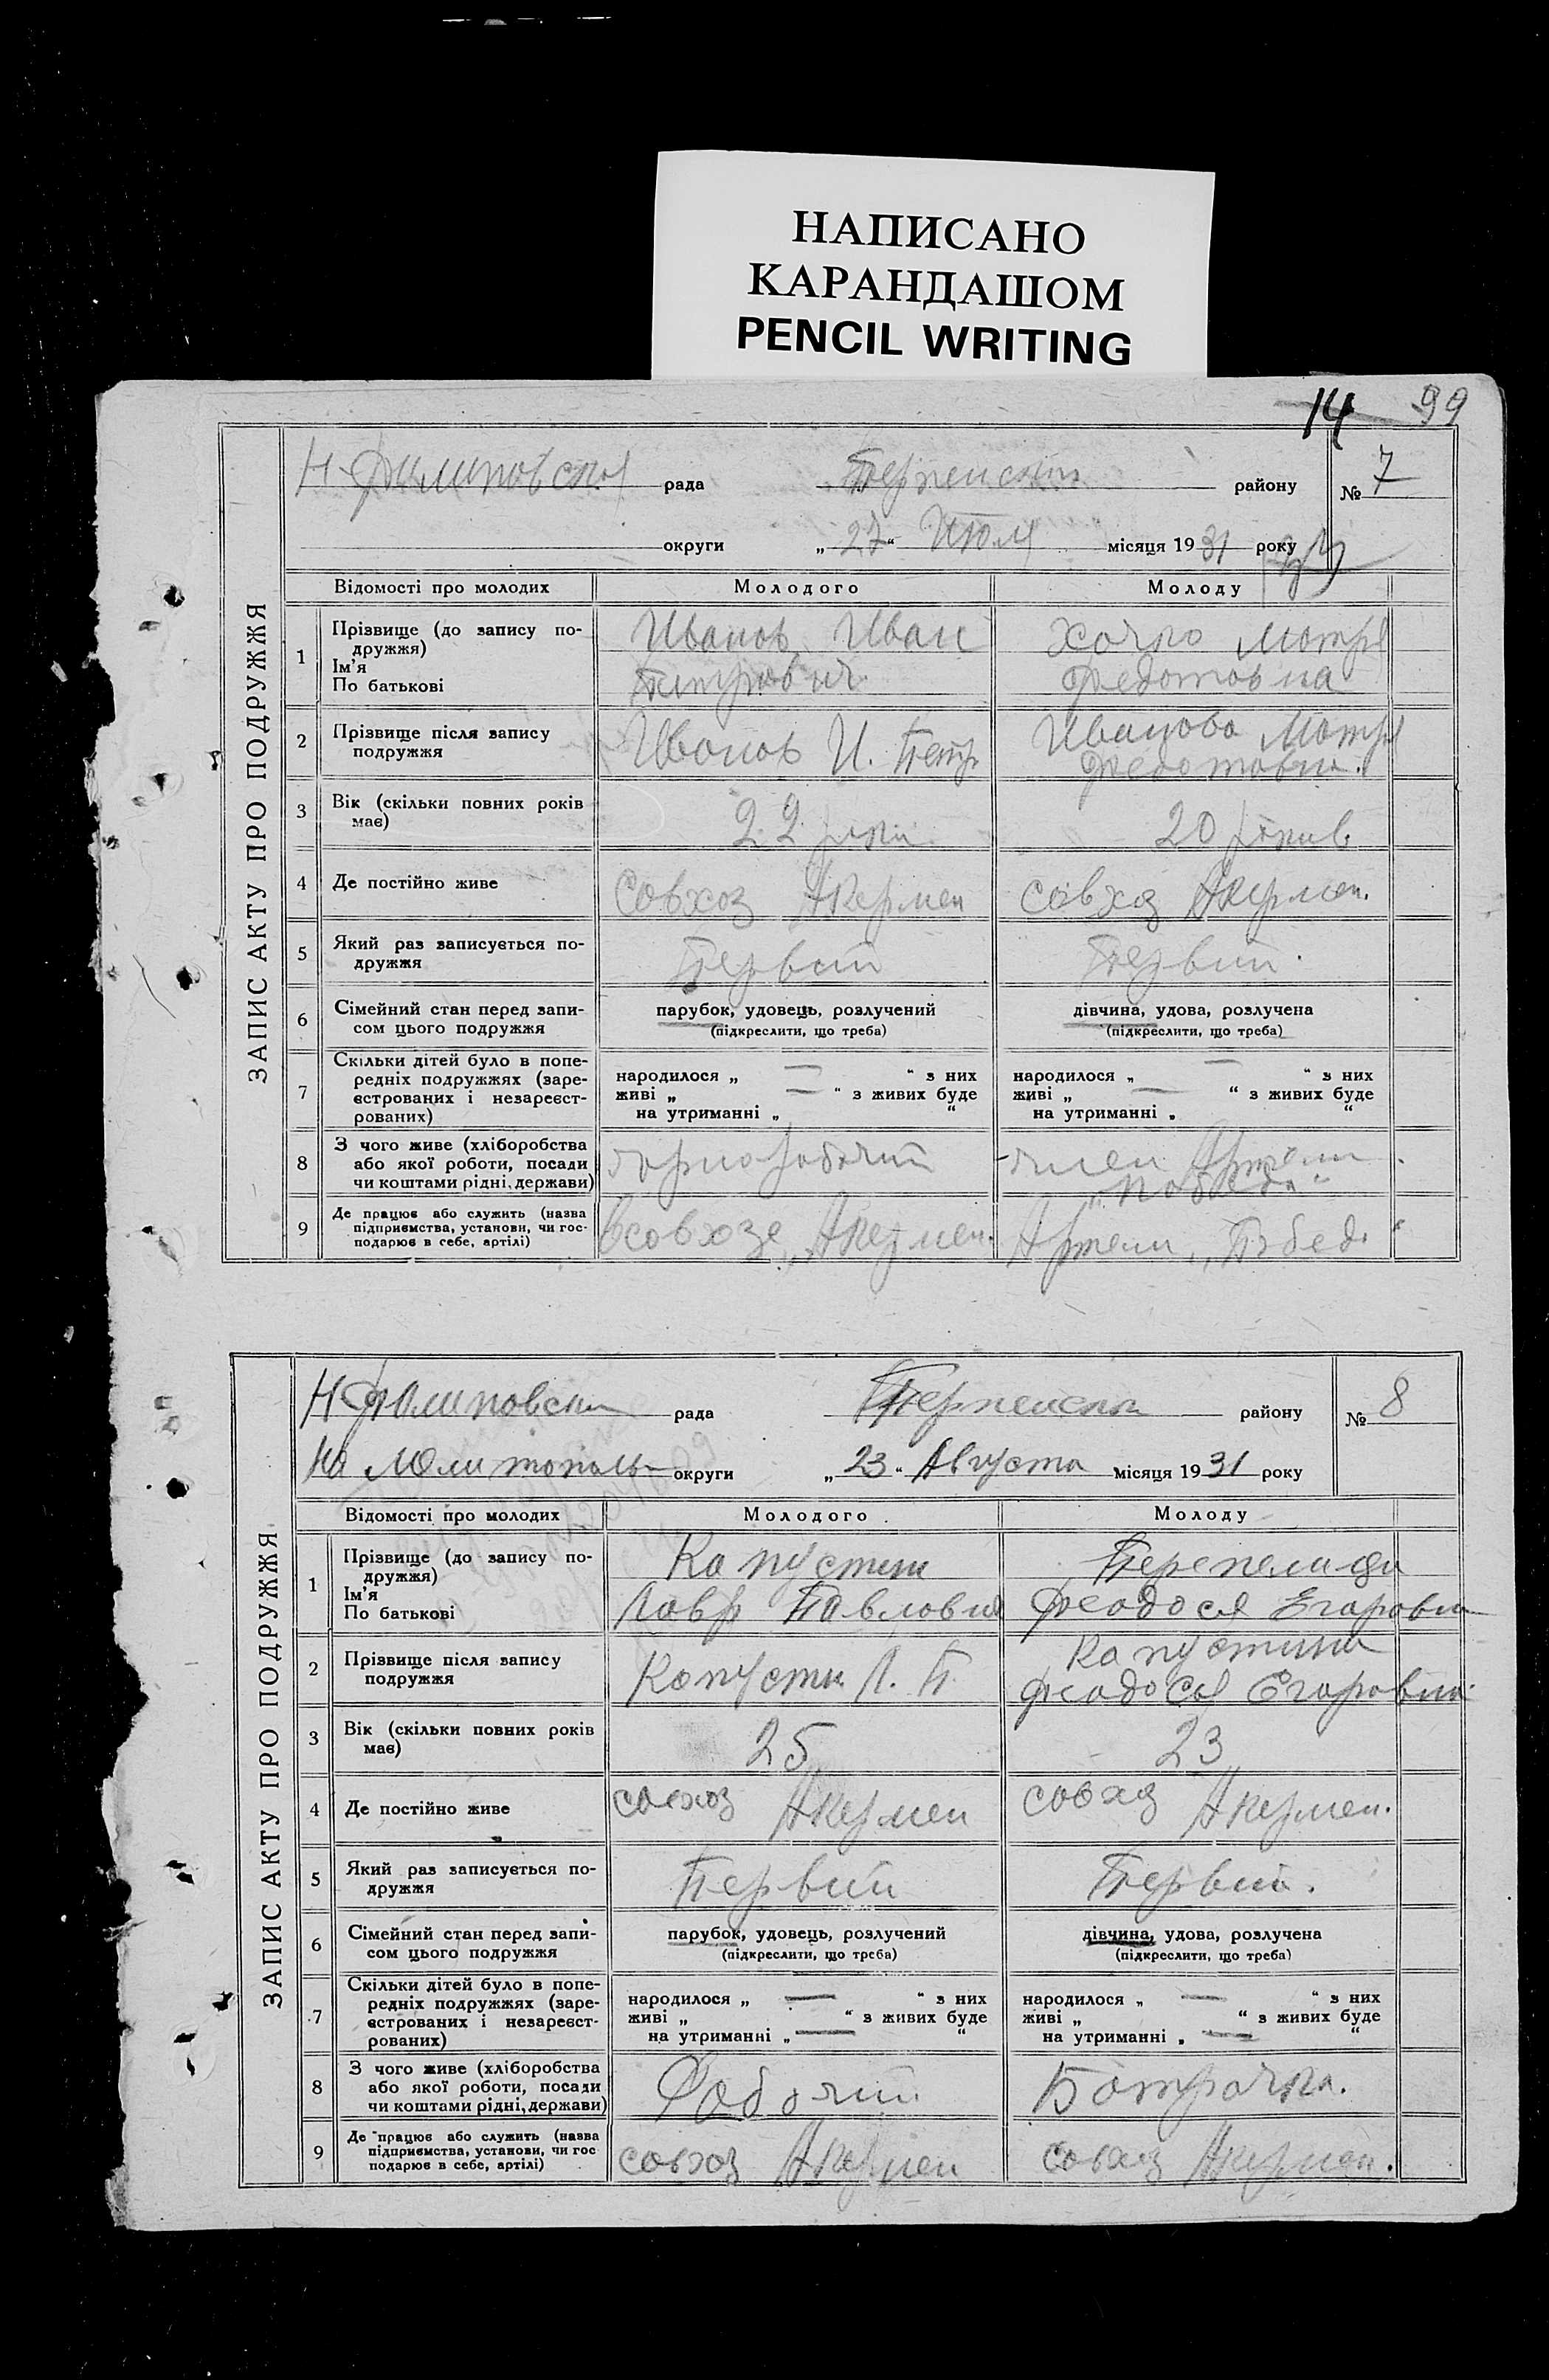 НАПИСАНО
КАРАНДАШОМ
PENCIL WRITING
14 99
ЗАПИС АКТУ ПРО ПОДРУЖЖЯ
Н-Филиповская рада Терпенский району № 7
округи „27“ Июля місяця 1931 року
Відомості про молодих Молодого Молоду
1 Прізвище (до запису по- Иванов Иван Хочко Мотря
дружжя)
Ім’я
По батькові Петрович Федотовна
2 Прізвище після запису Иванов И. Петр Иванова Мотря
подружжя Федотовна.
3 Вік (скільки повних років 22 роки 20 років
має)
4 Де постійно живе Совхоз Акермен совхоз Акермен.
5 Який раз записується по- Первий Первий.
дружжя
6 Сімейний стан перед запи- парубок, удовець, розлучений дівчина, удова, розлучена
сом цього подружжя (підкреслити, що треба) (підкреслити, що треба)
7 Скільки дітей було в попе-
редніх подружжях (заре- народилося „ — “ з них народилося „ — “ з них
єстрованих і незареєст- живі „ — “ з живих буде живі „ — “ з живих буде
рованих) на утриманні „ “ на утриманні „ “
8 З чого живе (хліборобства
або якої роботи, посади чорнорабочий член Артели
чи коштами рідні, держави) „Победа“
9 Де працює або служить (назва
підприємства, установи, чи гос- всовхозе „Акермен. Артели „Победа“
подарює в себе, артілі)
ЗАПИС АКТУ ПРО ПОДРУЖЖЯ
Н Филиповский рада Терпенский району № 8
На Мелитополь округи „23“ Августа місяця 1931 року
Відомості про молодих Молодого Молоду
1 Прізвище (до запису по- Капустин Перепелица
дружжя)
Ім’я Лавр Павлович Феодося Егоровна
По батькові
2 Прізвище після запису Капустин Л. П. Капустина
подружжя Феодося Егоровна
3 Вік (скільки повних років 25 23
має)
4 Де постійно живе совхоз Акермен совхоз Акермен.
5 Який раз записується по- Первий Первий.
дружжя
6 Сімейний стан перед запи- парубок, удовець, розлучений дівчина, удова, розлучена
сом цього подружжя (підкреслити, що треба) (підкреслити, що треба)
7 Скільки дітей було в попе-
редніх подружжях (заре- народилося „ — “ з них народилося „ — “ з них
єстрованих і незареєст- живі „ “ з живих буде живі „ “ з живих буде
рованих) на утриманні „ — “ на утриманні „ — “
8 З чого живе (хліборобства
або якої роботи, посади Рабочий Батрачка.
чи коштами рідні, держави)
9 Де працює або служить (назва
підприємства, установи, чи гос- совхоз Акермен совхоз Акермен.
подарює в себе, артілі)